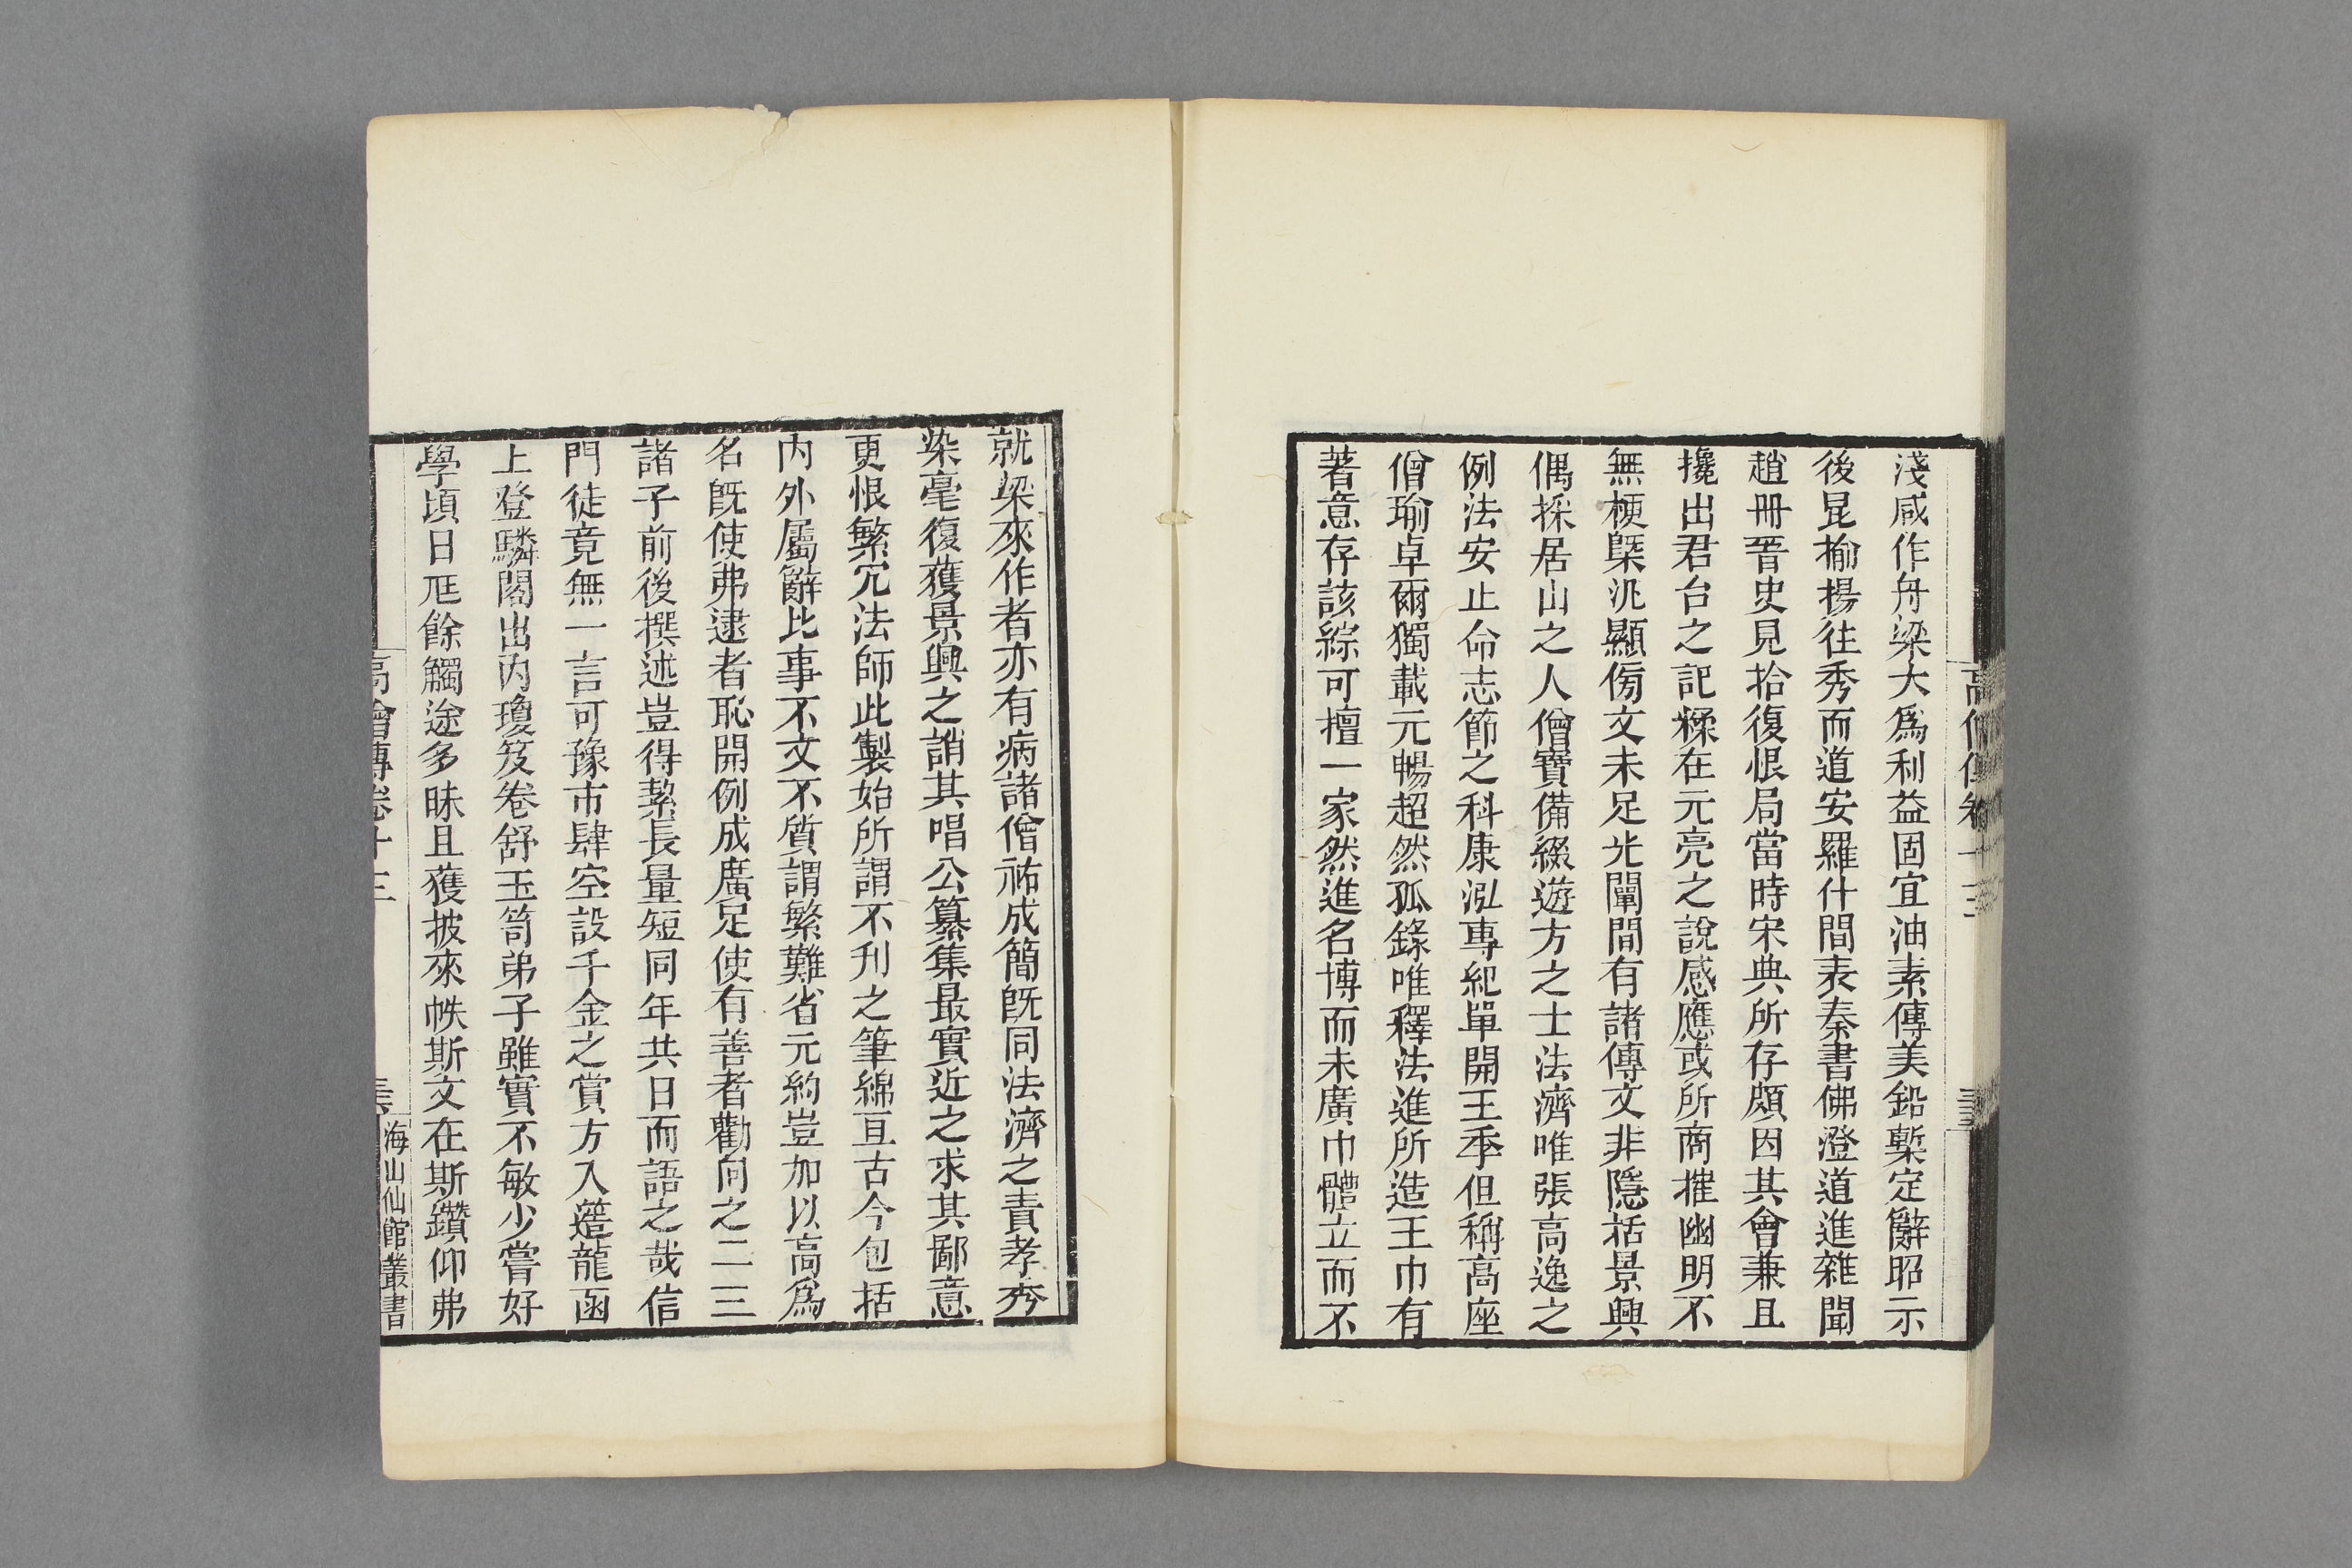 淺咸作舟梁大爲利益固宜油素傳美鉛槧定辭昭示
後昆揄揚往秀而道安羅什間表秦書佛澄道進雜聞
趙冊晉史見拾復恨局當時宋典所存頗因其會兼且
攙出君台之記糅在元亮之說感應或所商摧幽明不
無梗槩汎顯傍文未足光闡間有諸傳文非隱括景興
偶採居山之人僧寶備綴遊方之士法濟唯張高逸之
例法安止命志節之科康泓專紀單開王季但稱高座
僧瑜卓爾獨載元暢超然孤錄唯釋法進所造王巾有
著意存該綜可擅一家然進名博而未廣巾體立而不
就梁來作者亦有病諸僧祐成簡旣同法濟之責孝秀
染毫復獲景興之誚其唱公纂集最實近之求其鄙意
更恨繁冗法師此製始所謂不刋之筆綿亘古今包括
内外屬辭比事不文不質謂繁難省元約豈加以高爲
名旣使弗逮者恥開例成廣足使有善者勸向之二三
諸子前後撰述豈得絜長量短同年共日而語之哉信
門徒竟無一言可豫市肆空設千金之賞方入簉龍函
上登驎閣出内瓊笈卷舒玉笥弟子雖實不敏少嘗好
學頃日尫餘觸途多昧且獲披來帙斯文在斯鑽仰弗
高僧傳卷十三
海山仙館叢書